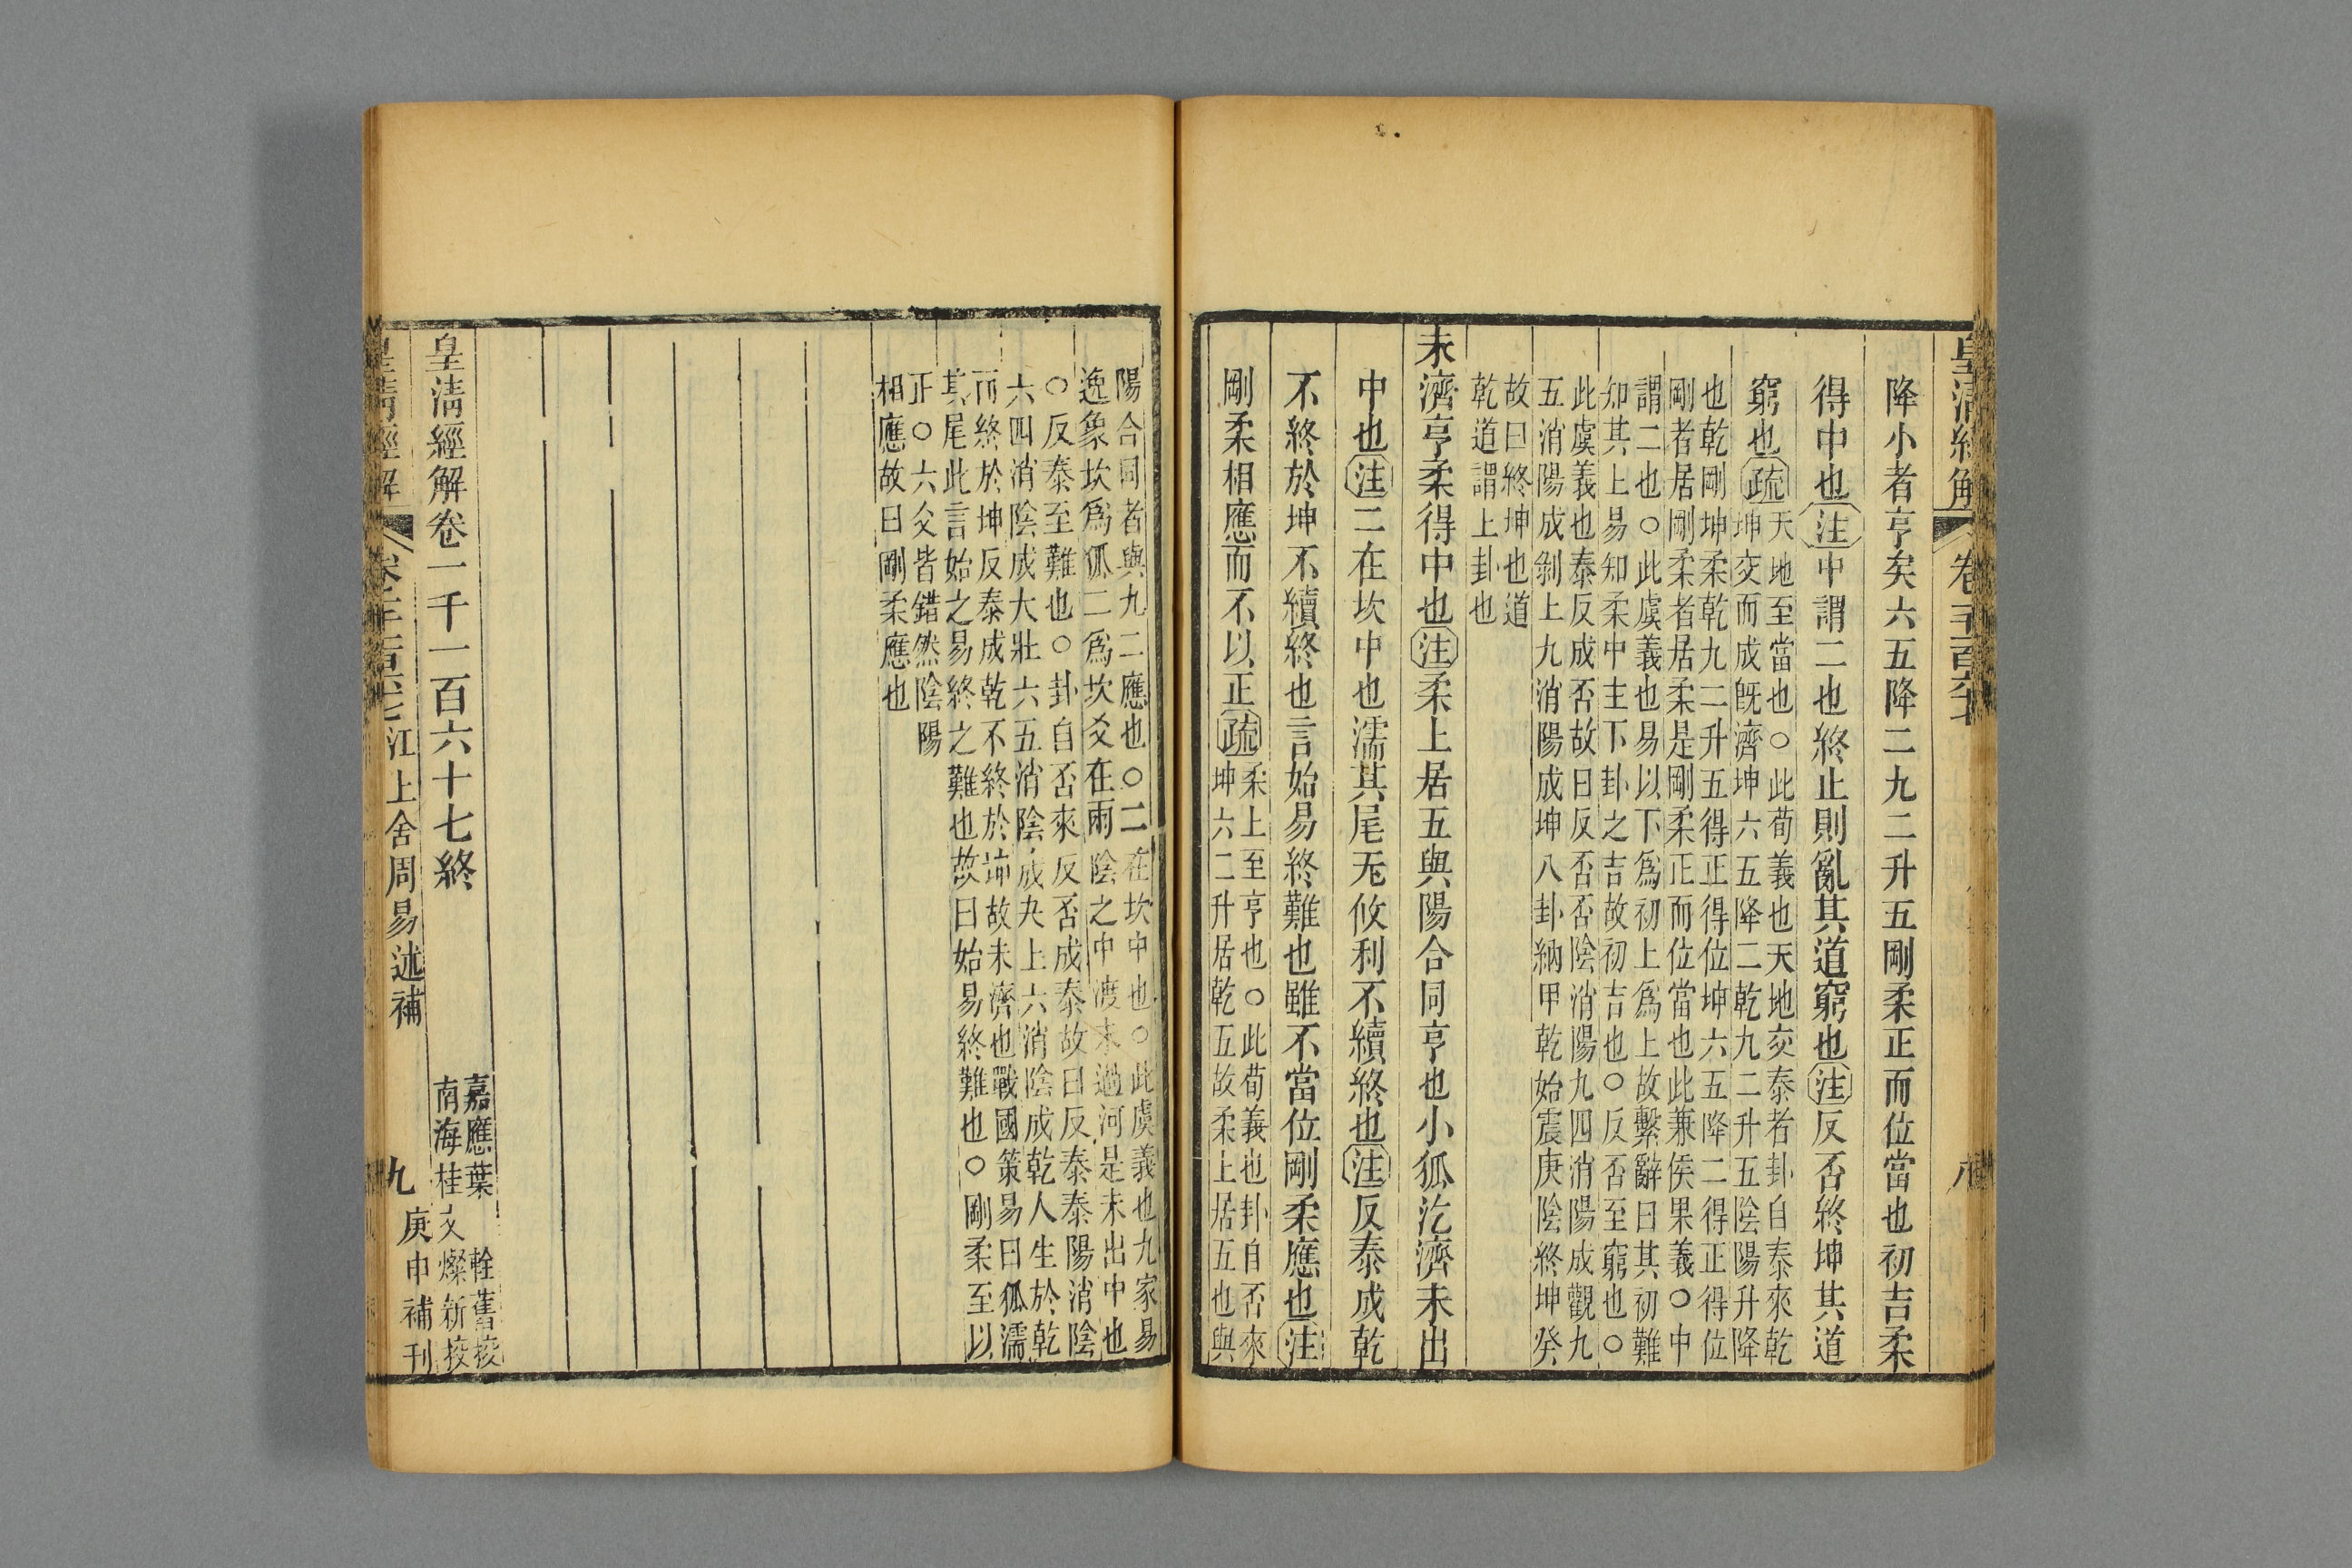 皇清經解
降小者亨矣六五降二九二升五剛柔正而位當也初吉柔
得中也注中謂二也終止則亂其道窮也注反否終坤其道
窮也疏天地至當也○此荀義也天地交泰者卦自泰來乾
坤交而成旣濟坤六五降二乾九二升五陰陽升降
也乾剛坤柔乾九二升五得正得位坤六五降二得正得位
剛者居剛柔者居柔是剛柔正而位當也此兼侯果義○中
謂二也○此虞義也易以下爲初上爲上故繫辭曰其初難
知其上易知柔中主下卦之吉故初吉也○反否至窮也○
此虞義也泰反成否故曰反否否陰消陽九四消陽成觀九
五消陽成剝上九消陽成坤八卦納甲乾始震庚陰終坤癸
故曰終坤也道
乾道謂上卦也
未濟亨柔得中也注柔上居五與陽合同亨也小狐汔濟未出
中也注二在坎中也濡其尾无攸利不續終也注反泰成乾
不終於坤不續終也言始易終難也雖不當位剛柔應也注
剛柔相應而不以正疏柔上至亨也○此荀義也卦自否來
坤六二升居乾五故柔上居五也與
陽合同者與九二應也○二在坎中也○此虞義也九家易
逸象坎爲狐二爲坎爻在兩陰之中渡未過河是未出中也
○反泰至難也○卦自否來反否成泰故曰反泰泰陽消陰
六四消陰成大壯六五消陰成夬上六消陰成乾人生於乾
而終於坤反泰成乾不終於坤故未濟也戰國策易曰狐濡
其尾此言始之易終之難也故曰始易終難也○剛柔至以
正○六爻皆錯然陰陽
相應故曰剛柔應也
皇清經解卷一千一百六十七終
嘉應葉輇舊挍
南海桂文燦新挍
皇清經解
江上舍周易述補
九
庚申補刊